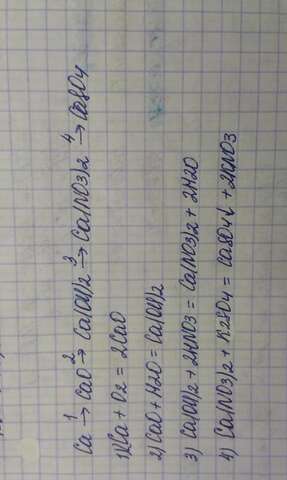 Ca 1→ CaO 2→ Ca(OH)2 3→ Ca(NO3)2 4→ CaSO4
1) 2Ca + O2 = 2CaO
2) CaO + H2O = Ca(OH)2
3) Ca(OH)2 + 2HNO3 = Ca(NO3)2 + 2H2O
4) Ca(NO3)2 + K2SO4 = CaSO4↓ + 2KNO3